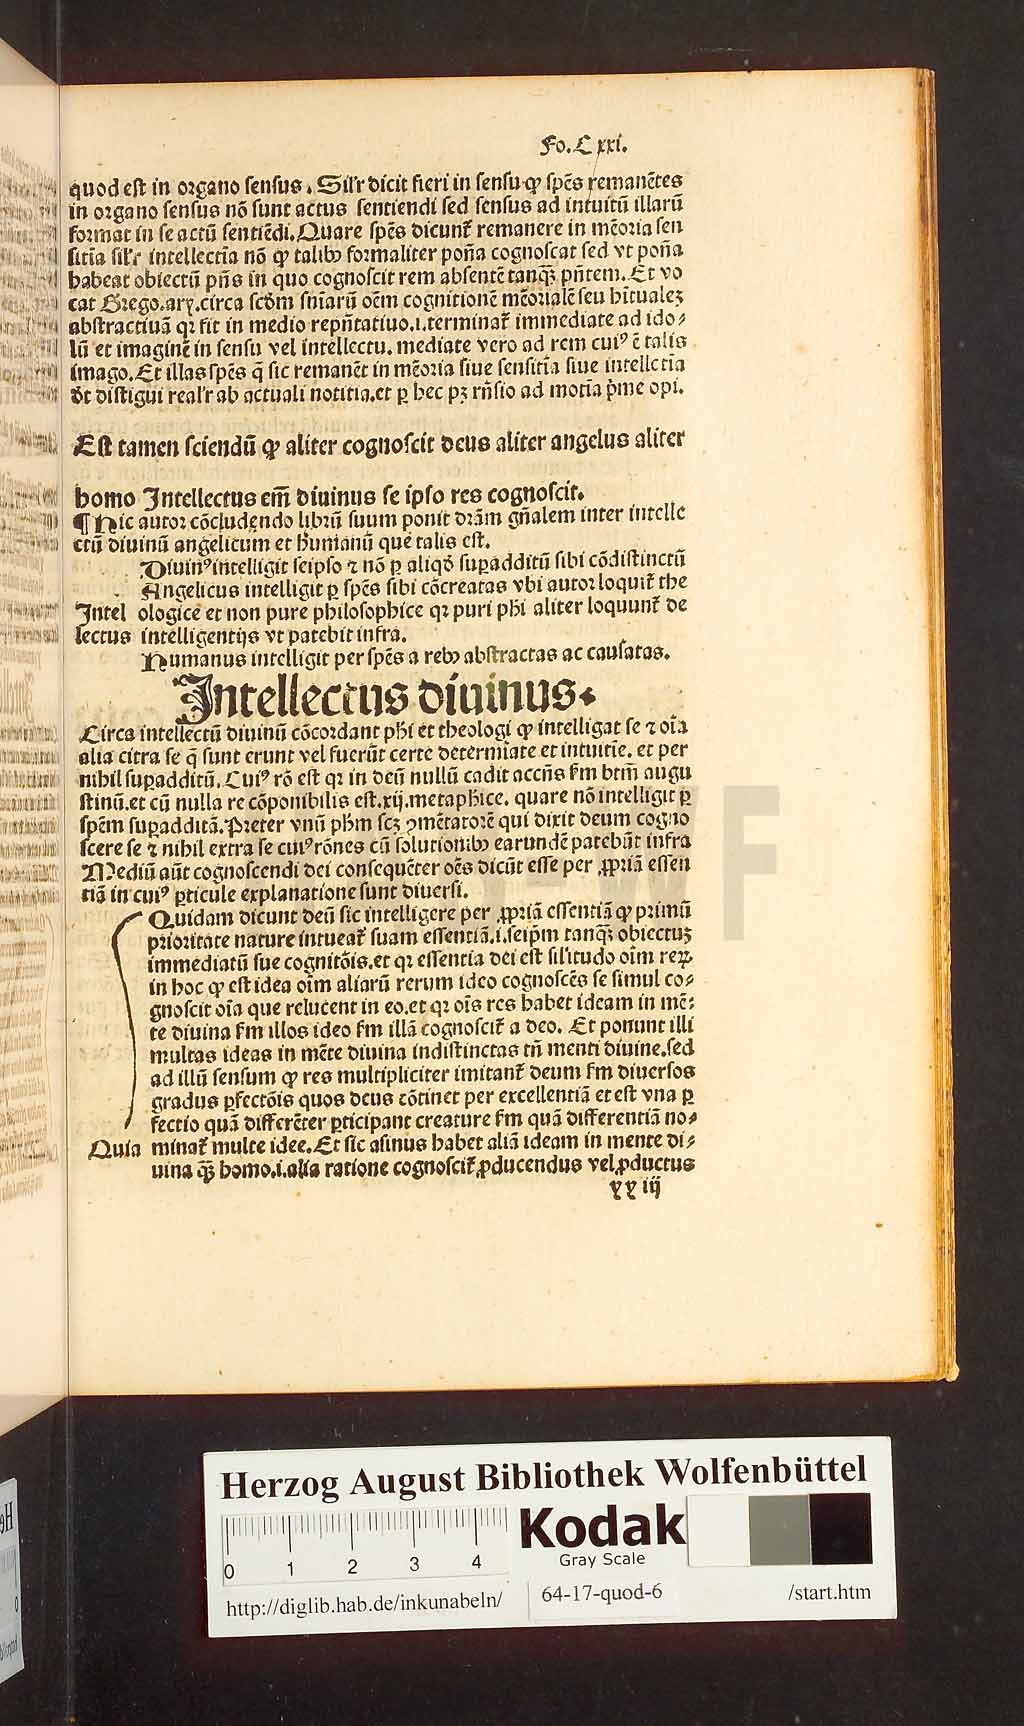 Fo.C xxi.
quod est in organo sensus. Silr dicit fieri in sensu ꝙ spẽs remanẽtes
in organo sensus nõ sunt actus sentiendi sed sensus ad intuitũ illarũ
format in se actũ sentiẽdi. Quare spẽs dicunt̃ remanere in mẽoria sen
sitĩa silr intellectĩa nõ ꝙ talibꝰ formaliter põa cognoscat sed vt põa
habeat obiectũ pñs in quo cognoscit rem absentẽ tanqꝫ pñtem. Et vo
cat Grego.ary.circa scõm sñiarũ oẽm cognitionẽ mẽorialẽ seu hĩtualeꝫ
abstractiuã qꝛ fit in medio repñtatiuo.i.terminat̃ immediate ad ido⸗
lũ et imaginẽ in sensu vel intellectu. mediate vero ad rem cuiꝰ ẽ talis
imago. Et illas spẽs q̃ sic remanẽt in mẽoria siue sensitĩa siue intellectĩa
ðt distigui realr ab actuali notitia.et ꝑ hec pꝫ rñsio ad motĩa p̃me opi.
Est tamen sciendũ ꝙ aliter cognoscit deus aliter angelus aliter
homo Intellectus em̃ diuinus se ipso res cognoscit.
¶ Hic autor cõcludendo librũ suum ponit drãm gñalem inter intelle
ctũ diuinũ angelicum et humanũ que talis est.
Diuinꝰ intelligit seipso ⁊ nõ ꝑ aliqð supadditũ sibi cõdistinctũ
Angelicus intelligit ꝑ spẽs sibi cõcreatas vbi autor loquit̃ the
Intel ologice et non pure philosophice qꝛ puri phi aliter loquunt̃ de
lectus intelligentijs vt patebit infra.
Humanus intelligit per spẽs a rebꝰ abstractas ac causatas.
Intellectus diuinus.
Circa intellectũ diuinũ cõcordant phi et theologi ꝙ intelligat se ⁊ oĩa
alia citra se q̃ sunt erunt vel fuerũt certe determĩate et intuitĩe. et per
nihil supadditũ. Cuiꝰ rõ est qꝛ in deũ nullũ cadit accñs fm btm̃ augu
stinũ.et cũ nulla re cõponibilis est.xij.metaphice. quare nõ intelligit ꝑ
spẽm supadditã. Preter vnũ phm scꝫ ꝯmẽtatorẽ qui dixit deum cogno
scere se ⁊ nihil extra se cuiꝰ rõnes cũ solutionibꝰ earundẽ patebũt infra
Mediũ aũt cognoscendi dei consequẽter oẽs dicũt esse per ꝓpriã essen
tiã in cuiꝰ ꝑticule explanatione sunt diuersi.
Quidam dicunt deũ sic intelligere per ꝓpriã essentiã ꝙ primũ
prioritate nature intueat̃ suam essentiã.i.seipm̃ tanqꝫ obiectuꝫ
immediatũ sue cognitõis.et qꝛ essentia dei est silitudo oĩm reꝝ
in hoc ꝙ est idea oĩm aliarũ rerum ideo cognoscẽs se simul co⸗
gnoscit oĩa que relucent in eo.et qꝛ oĩs res habet ideam in mẽ⸗
te diuina fm illos ideo fm illã cognoscit̃ a deo. Et ponunt illi
multas ideas in mẽte diuina indistinctas tñ menti diuine.sed
ad illũ sensum ꝙ res multipliciter imitant̃ deum fm diuersos
gradus ꝑfectõis quos deus cõtinet per excellentiã et est vna ꝑ
fectio quã differẽter ꝑticipant creature fm quã differentiã no⸗
Quia minat̃ multe idee. Et sic asinus habet aliã ideam in mente di⸗
uina qꝫ homo.i.alia ratione cognoscit̃ ꝓducendus vel ꝓductus
xx iij
Herzog August Bibliothek Wolfenbüttel
0 1 2 3 4
Kodak
Gray Scale
http://diglib.hab.de/inkunabeln/ 64-17-quod-6 /start.htm